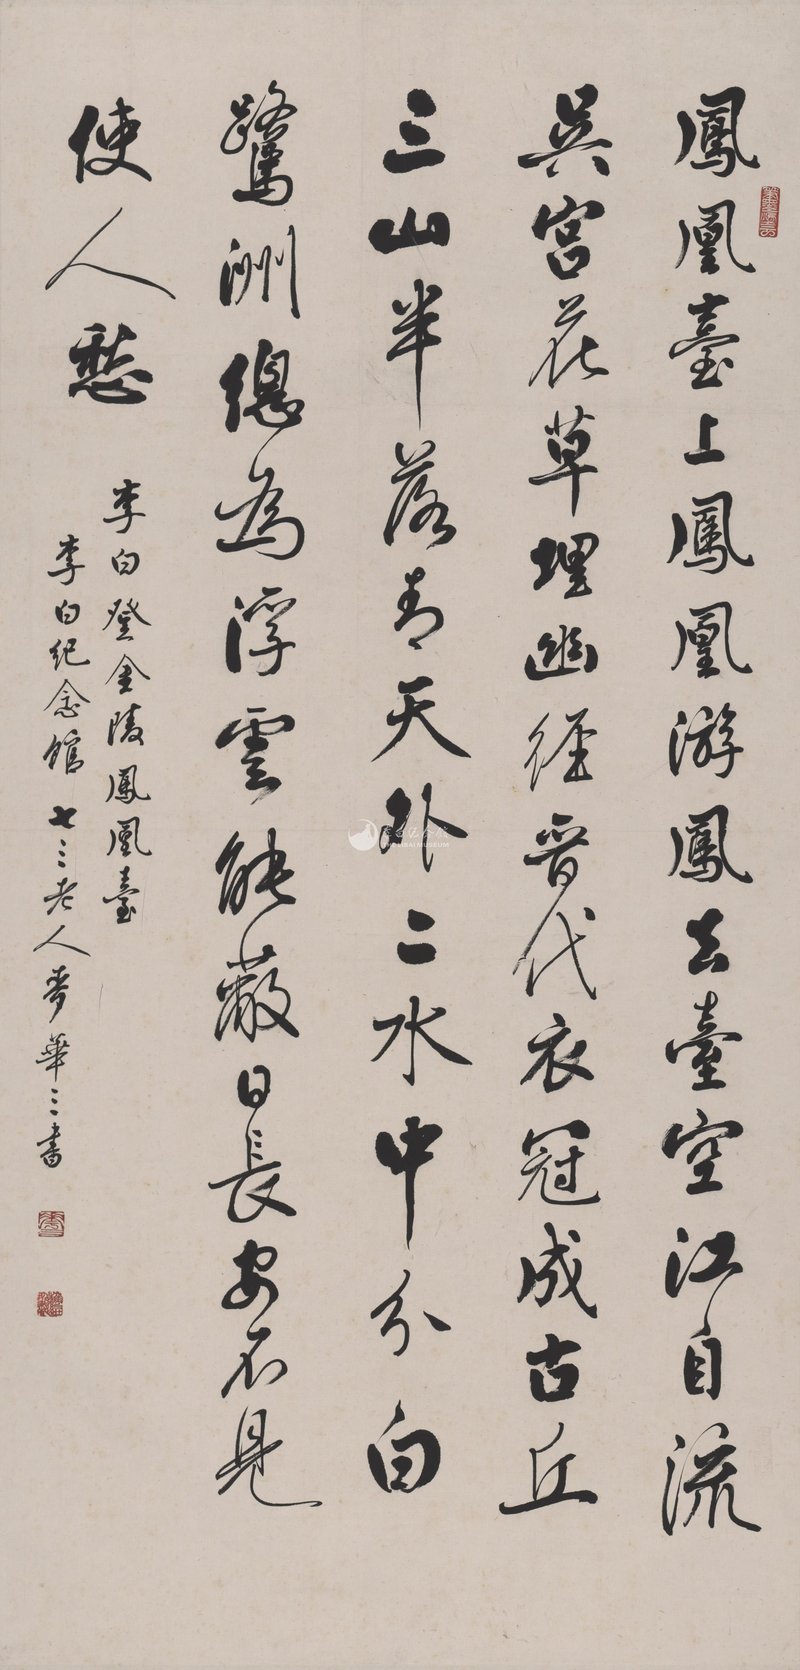 鳳凰臺上鳳凰游鳳去臺空江自流
吳宮花草埋幽徑晉代衣冠成古丘
三山半落青天外二水中分白
鷺洲總為浮雲能蔽日長安不見
使人愁
李白登金陵鳳凰臺
李白纪念館七三老人麥華三書
李白纪念馆
THE LIBAI MUSEUM